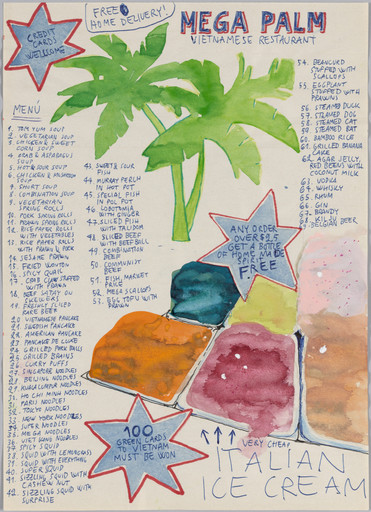 CREDIT
CARDS
WELCOME
FREE
HOME DELIVERY!
MEGA PALM
VIETNAMESE RESTAURANT
MENU
1. TOM YUM SOUP
2. VEGETARIAN SOUP
3. CHICKEN & SWEET
CORN SOUP
4. CRAB & ASPARAGUS
SOUP
5. HOT & SOUR SOUP
6. CHICKEN & MUSHROOM
SOUP
7. SHORT SOUP
8. COMBINATION SOUP
9. VEGETARIAN
SPRING ROLLS
10. PORK SPRING ROLLS
11. PRAWNS SPRING ROLLS
12. RICE PAPER ROLLS
WITH VEGETABLES
13. RICE PAPER ROLLS
WITH PRAWN & PORK
14. SESAME PRAWN
15. FRIED WONTON
16. SPICY QUAIL
17. CRAB CLAW STUFFED
WITH PRAWN
18. BEEF SATAY ON
SKEWERS
19. FRESHLY SLICED
RARE BEEF
20. VIETNAMESE PANCAKE
21. SWEDISH PANCAKE
22. AMERICAN PANCAKE
23. PANCAKE DE LUXE
24. GRILLED PORK BALLS
25. GRILLED BRAINS
26. CURRY PUFFS
27. SINGAPORE NOODLES
28. BEIJING NOODLES
29. KUALA LUMPUR NOODLES
30. HO CHI MINH NOODLES
31. PARIS NOODLES
32. TOKYO NOODLES
33. NEW YORK NOODLES
34. SUPER NOODLES
35. MEGA NOODLES
36. VIET KONG NOODLES
37. SPICY SQUID
38. SQUID WITH LEMONGRASS
39. SQUID WITH EVERYTHING
40. SUPER SQUID
41. SIZZLING SQUID WITH
CASHEW NUT
42. SIZZLING SQUID WITH
SURPRISE
43. SWEET & SOUR
FISH
44. MURRAY PERCH
IN HOT POT
45. SPECIAL FISH
IN POL POT
46. LOBSTER
WITH GINGER
47. SLICED FISH
WITH
48. SLICED BEEF
WITH BEEF BALL
49. COMBINATION
BEEF
50. COMMUNIST
BEEF
51. FISH, MARKET
PRICE
52. MEGA SCALLOPS
53. EGG TOFU WITH
PRAWN
54. BEANCURD
STUFFED WITH
SCALLOPS
55. EGGPLANT
STUFFED WITH
PRAWNS
56. STEAMED DUCK
57. STEAMED DOG
58. STEAMED CAT
59. STEAMED BAT
60. BAMBOO RICE
61. GRILLED BANANA
CAKE
62. AGAR JELLY,
RED BEANS WITH
COCONUT MILK
63. VODKA
64. WHISKY
65. RHUM
66. GIN
67. BRANDY
68. BEER
69. BELGIAN
ANY ORDER
OVER $2,5
GET A BOTTLE
OF HOME MADE
SPICES
FREE
100
GREEN CARDS
TO VIETNAM
MUST BE WON
VERY CHEAP
ITALIAN
ICE CREAM